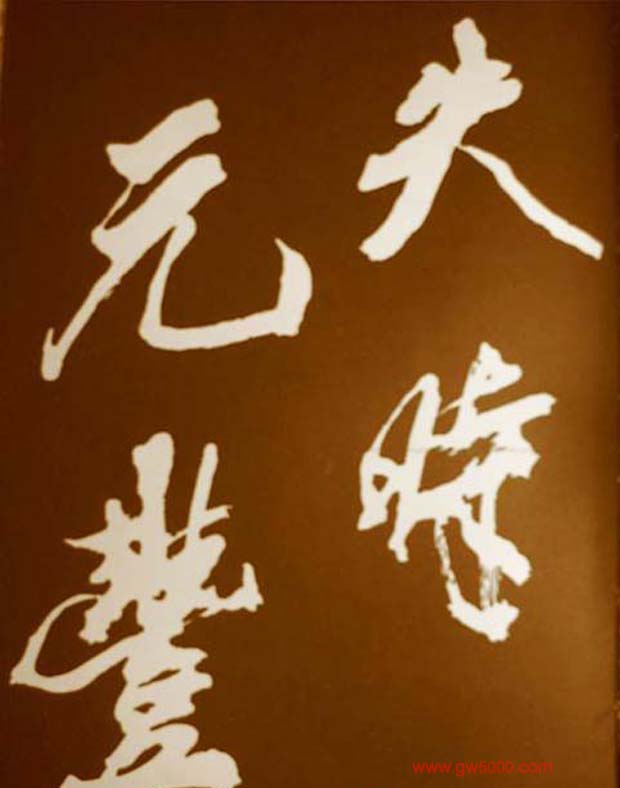 失時
元豐
www.gw5000.com